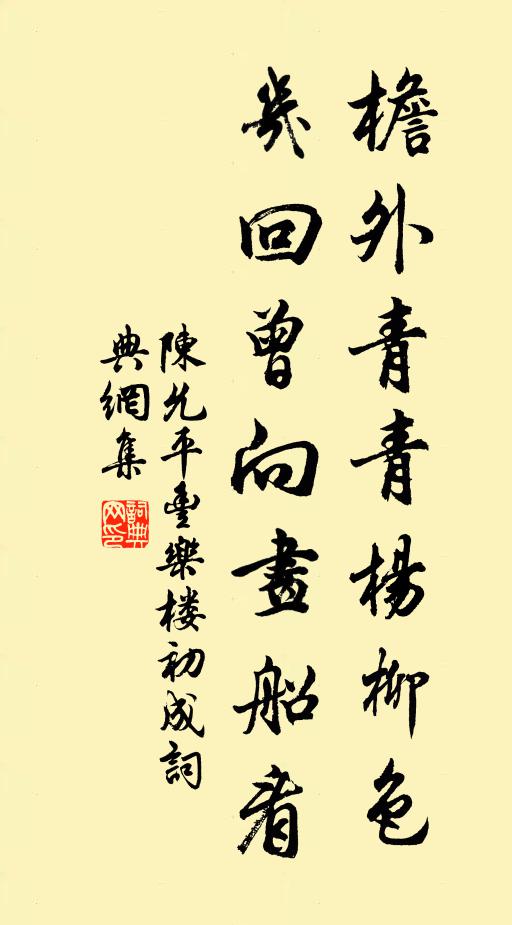 檐外青青楊柳色
幾回曾向畫船看
陳允平豐樂楼初成詞
典網集
詞典网印